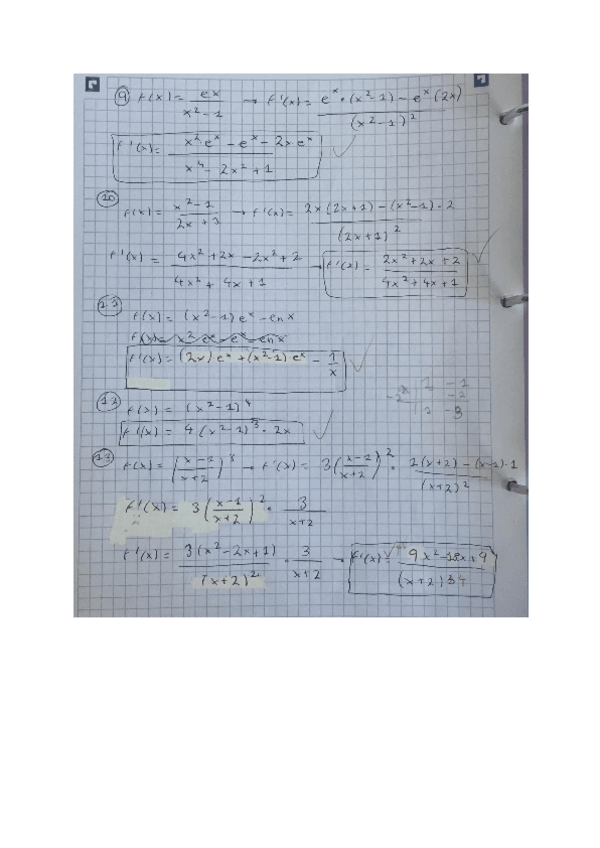 ⑨ f(x) = ex / x²-1 → f'(x) = e^x • (x²-1) - e^x (2x) / (x²-1)²
f'(x) = x² e^x - e^x - 2x e^x / x⁴ - 2x² + 1 ✓
⑩ f(x) = x²-1 / 2x+1 → f'(x) = 2x (2x+1) - (x²-1)·2 / (2x+1)²
f'(x) = 4x² + 2x - 2x² + 2 / 4x² + 4x + 1 → f'(x) = 2x² + 2x + 2 / 4x² + 4x + 1 ✓
f(x) = (x²-1) e^x - ln x
f'(x) = (2x) e^x + (x²-1) e^x - 1/x ✓
⑫ f(x) = (x²-1)⁴
f'(x) = 4 (x²-1)³ · 2x ✓
⑬ f(x) = (x-1 / x+2)³ → f'(x) = 3 (x-1 / x+2)² · 1(x+2) - (x-1)·1 / (x+2)²
f'(x) = 3 (x-1 / x+2)² · 3 / x+2
f'(x) = 3(x²-2x+1) / (x+2)² · 3 / x+2 → f'(x) = 9x²-18x+9 / (x+2)